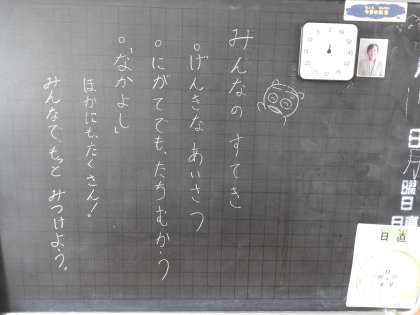 みんなの すてき
○げんきな あいさつ
○にがてでも、たちむかう
○「なかよし」
ほかにも、たくさん!
みんなで、もっと みつけよう。
月
日
曜日
日直
日直